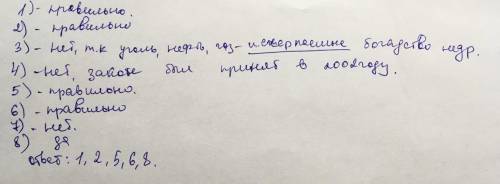 1) - правильно.
2) - правильно
3) - нет, т.к уголь, нефть, газ - исчерпаемые богадство недр.
4) - нет, закон был принят в 2002 году.
5) - правильно.
6) - правильно
7) - нет.
8) да
ответ: 1, 2, 5, 6, 8.